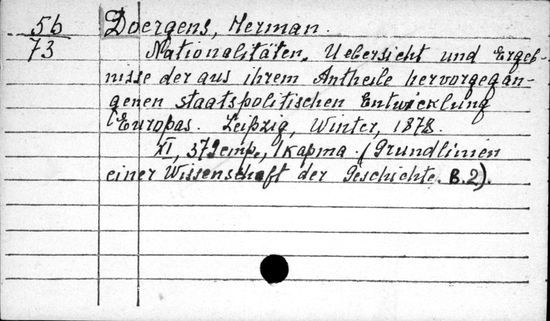 56
73
Doergens, Herman.
Nationalitäten. Uebersicht und Ergeb-
nisse der aus ihrem Antheile hervorgegan-
genen staatspolitischen Entwicklung
Europas. Leipzig, Winter, 1878.
XI, 372 стр., 1 карта. (Grundlinien
einer Wissenschaft der Geschichte. B.2).